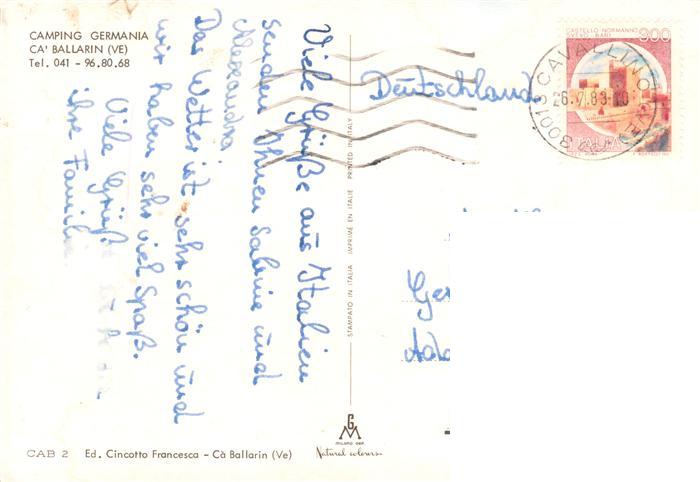 CAMPING GERMANIA
CA' BALLARIN (VE)
Tel. 041 - 96.80.68
Viele Grüße aus Italien
senden Ihnen Sabine und
Alexandra
Das Wetter ist sehr schön und
wir haben sehr viel Spaß.
Viele Grüße
ihre Familie
STAMPATO IN ITALIA IMPRIMÉ EN ITALIE PRINTED IN ITALY
Deutschland
CASTELLO NORMANNO
SVEVO - BARI
300
ITALIA
CAVALLINO
26.
.83-10
30013
GM
MILANO DEP.
Natural colours
CAB 2 Ed. Cincotto Francesca - Cà Ballarin (Ve)